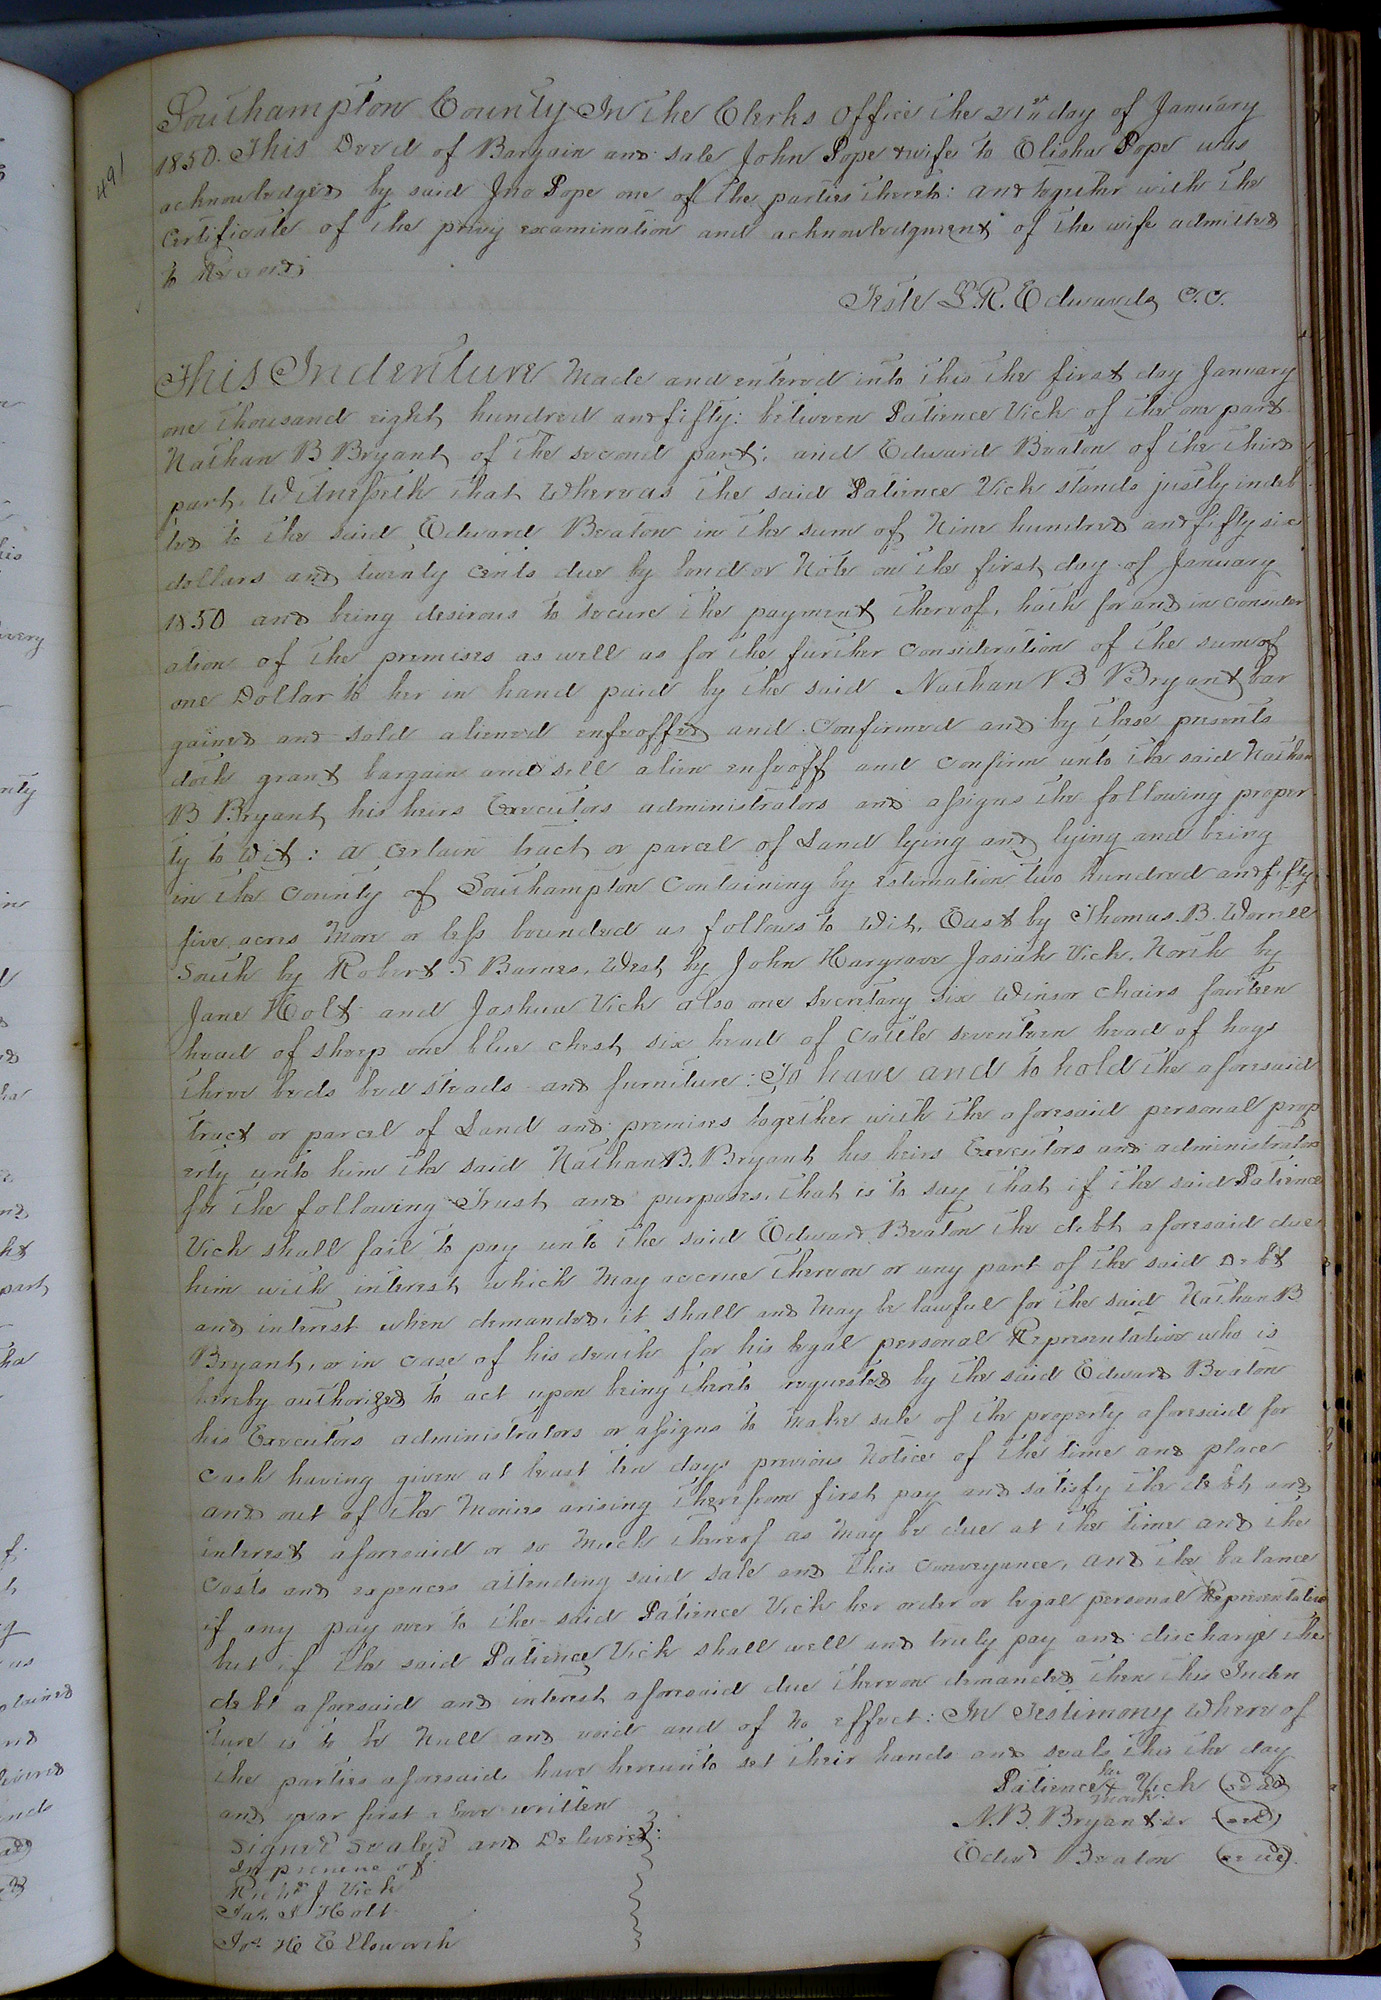 491
Southampton County In the Clerks Office the 21st day of January
1850. This Deed of Bargain and sale John Pope & wife to Elisha Pope was
acknowledged by said Jno Pope one of the parties thereto: and together with the
certificate of the privy examination and acknowledgment of the wife admitted
to Record;
Teste L. R. Edwards C. C.
This Indenture Made and entered into this the first day January
one thousand eight hundred and fifty: between Patience Vick of the one part
Nathan B Bryant of the second part; and Edward Beaton of the third
part. Witnesseth that Whereas the said Patience Vick stands justly indeb
ted to the said Edward Beaton in the sum of Nine hundred and fifty six
dollars and twenty cents due by bond or Note on the first day of January
1850 and being desirous to secure the payment thereof, hath for and in consider
ation of the premises as well as for the further consideration of the sum of
one Dollar to her in hand paid by the said Nathan B Bryant bar
gained and sold aliened enfeoffed and confirmed and by these presents
doth grant bargain and sell alien enfeoff and confirm unto the said Nathan
B Bryant his heirs Executors administrators and assigns the following proper
ty to wit: a certain tract or parcel of Land lying and lying and being
in the County of Southampton Containing by estimation two hundred and fifty
five acres More or less bounded as follows to wit, East by Thomas. B. Worrell
South by Robert S Barnes, West by John Hargrave Josiah Vick, North by
Jane Holt and Joshua Vick also one Secretary six Winsor chairs fourteen
head of sheep one blue chest six head of Cattle seventeen head of hogs
three beds bed steads and furniture: To have and to hold the aforesaid
tract or parcel of Land and premises together with the aforesaid personal prop
erty unto him the said Nathan B. Bryant his heirs Executors and administrators
for the following Trust and purposes, that is to say that if the said Patience
Vick shall fail to pay unto the said Edward Beaton the debt aforesaid due
him with interest which May accrue thereon or any part of the said Debt
and interest when demanded, it shall and May be lawful for the said Nathan B
Bryant, or in case of his death for his legal personal Representative who is
hereby authorized to act upon being thereto requested by the said Edward Beaton
his Executors administrators or assigns to Make sale of the property aforesaid for
cash having given at least ten days previous Notice of the time and place
and out of the Monies arising therefrom first pay and satisfy the debt and
interest aforesaid or so Much thereof as May be due at the time and the
costs and expences attending said sale and this conveyance, and the balance
if any pay over to the said Patience Vick her order or legal personal Representative
but if the said Patience Vick shall well and truly pay and discharge the
debt aforesaid and interest aforesaid due thereon demanded then this Inden
ture is to be Null and void and of No effect: In Testimony Where of
the parties aforesaid have hereunto set their hands and seals this the day
and year first above written
Patience her X mark Vick (seal)
N. B. Bryant sr (seal)
Edwd Beaton (seal)
Signed Sealed and Delivered:
In presence of
Richd J Vick
Jas. J Holt
Jos H Ellsworth